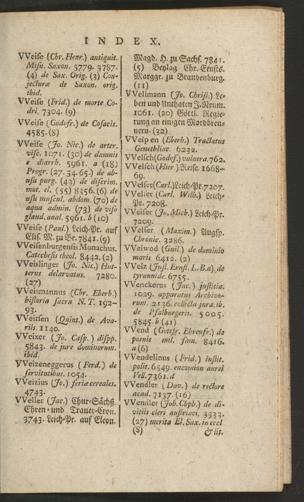 INDEX.
VVeise (Chr. Henr.) antiquit.
Misn. Saxon. 3779. 3787.
(4) de Sax. Orig. (3) Con-
jectura de Saxon. orig.
ibid.
VVeise (Frid.) de morte Co-
dri. 7304. (9)
VVeise (Godofr.) de Cosacis.
4585. (8)
VVeise (Jo. Nic.) de arter.
visc. 1071. (30) de damnis
e diatrib. 5961. a (18)
Progr. (27. 34. 65.) de ab-
usu purg. (43) de discrim.
mut. cl. (55) 8156. (6) de
usu muscul. abdom. (70) de
aqua admin. (73) de viso
gland. anal. 5961. b (10)
VVeise (Paul.) Leich-Pr. auf
Elis. M. zu Br. 7841. (9)
VVeissenburgensis Monachus.
Catechesis theol. 8442. (2)
VVeislinger (Jo. Nic.) Hut-
tenus delarvatus. 7280.
(27)
VVeismannus (Chr. Eberh.)
historia sacra N. T. 192-
93.
VVeitsen (Quint.) de Ava-
riis. 1140.
VVeixer (Jo. Casp.) dispp.
5843. de jure dominorum.
ibid.
VVeizenegger us (Ferd.) de
servitutibus. 1054.
VVeizius (Jo.) feriae cereales.
4743.
VVeller (Jac.) Chur-Sächß.
Ehren- und Trauer-Cron.
3743. Leich-Pr. auf Eleon.
Magd. H. zu Sachs. 7841.
(5) Beylag Chr. Ernsts.
Marggr. zu Brandenburg.
(11)
VVellmann (Jo. Christ.) Le-
ben und Unthaten J. Neum.
1061. (20) Göttl. Regie-
rung an einigen Mordbren-
nern. (32)
VVelpien (Eberh.) Tractatus
Genethliac. 6232.
VVelsch (Godof.) vulnera. 762.
VVelsch (Hier.) Reise. 1668-
69.
VVelser (Carl.) Leich-Pr. 7207.
VVelser (Carl. Wilh.) Leich-
Pr. 7208.
VVelser (Jo. Mich.) Leich-Pr.
7209.
VVelser (Maxim.) Augsp.
Chronic. 3286.
VVelwod (Guil.) de dominio
maris 6412. (2)
VVelz (Just. Ernst. L. B. a) de
tyrannide. 6755.
VVenckerus (Jac.) justitia.
1029. apparatus Archivo-
rum. 2136. collecta jura. ib.
de Pfalburgeris. 5005.
5845 b (41)
VVend (Gottfr. Ehrenfr.) de
poenis mil. som. 8416.
a (6)
VVendelinus (Frid.) instit.
polit. 6549. encomion aurei
Vell. 7361. d
VVendler (Dav.) de rectore
acad. 7137. (16)
VVendler (Job. Chph.) de di-
vitiis cleri austriaci. 3333.
(27) merita El. Sax. in eccl
(8) & lit.